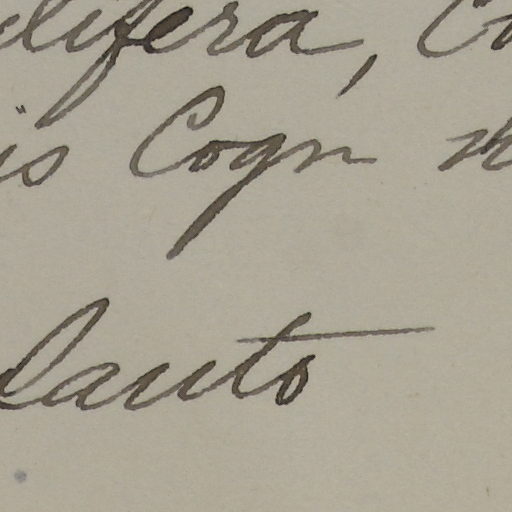 lifera, C
is Cogn n
lanto